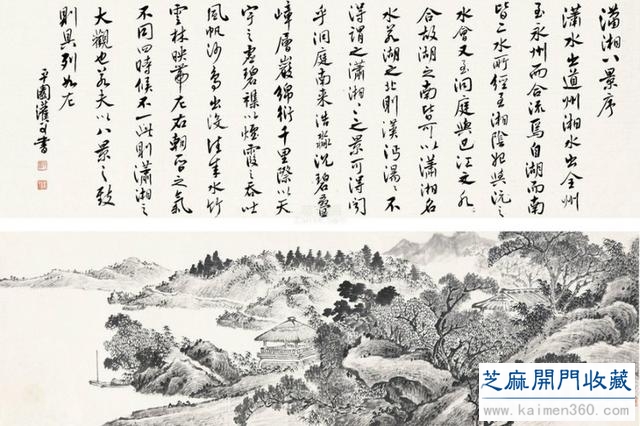 瀟湘八景序
瀟水出道州湘水出全州
至永州而合流焉自湖而南
皆二水所經至湘陰始與沅之
水會又至洞庭與巴江之水
合故湖之南皆可以瀟湘名
水若湖之北則漢沔湯々不
得謂之瀟湘々之景可得聞
乎洞庭南来浩淼沈碧疊
嶂層巖綿衍千里際以天
宇之虛碧襍以煙霞之吞吐
風帆沙鳥出没往来水竹
雲林映帶左右朝昏之氣
不同四時候不一此則瀟湘之
大觀也若夫以八景之致
則具列如左
芝麻開門收藏
www.kaimen360.com/